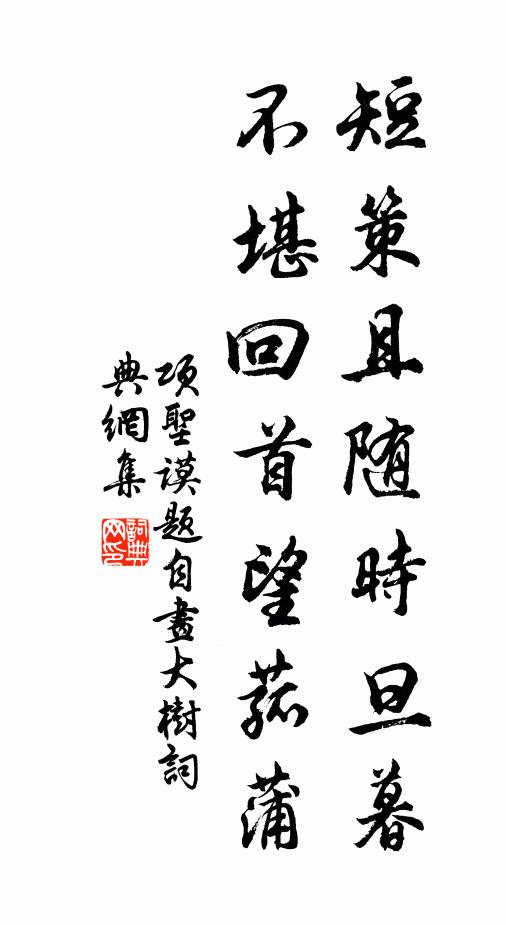 短策且随時旦暮
不堪回首望菰蒲
項聖謨題自畫大樹詞
典網集
詞典网印